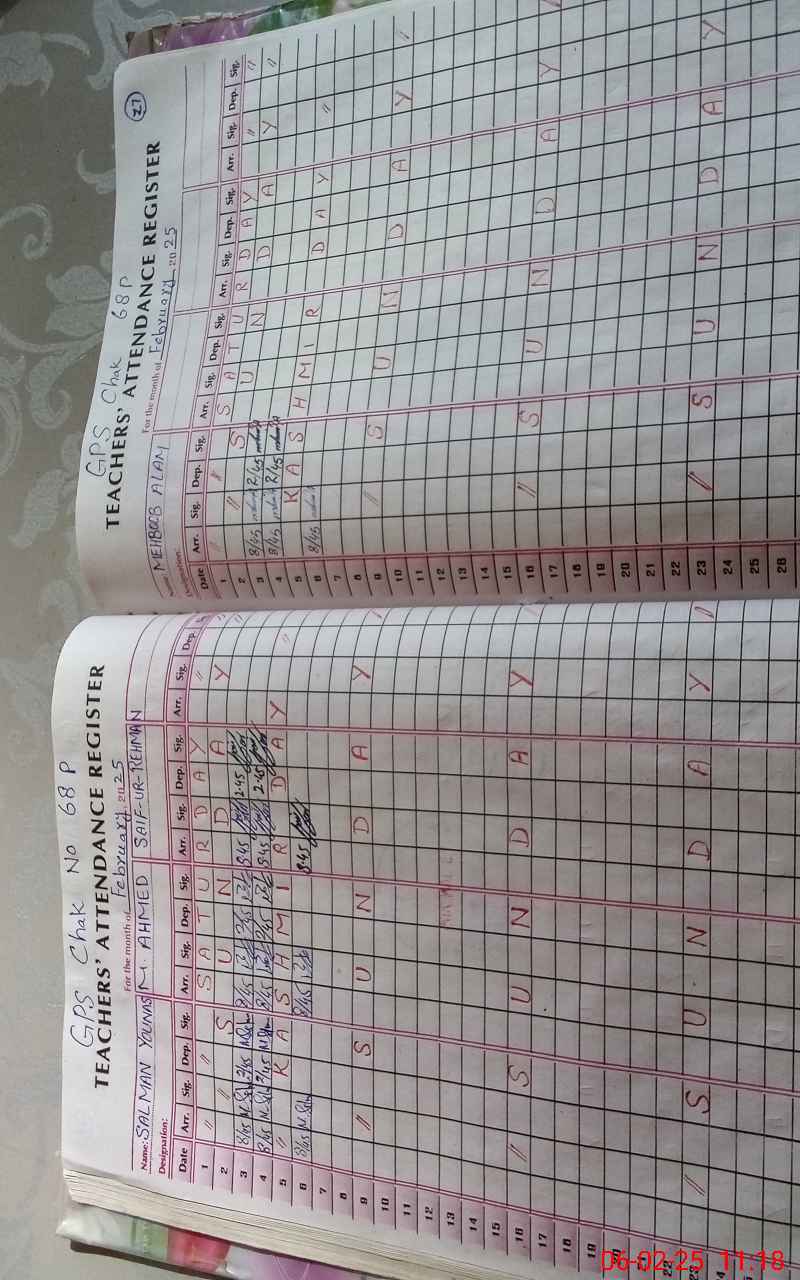 GPS Chak No 68 P
TEACHERS' ATTENDANCE REGISTER
For the month of February 2025
Name: SALMAN YOUNAS M. AHMED SAIF-UR-REHMAN
Designation:
Date Arr. Sig. Dep. Sig. Arr. Sig. Dep. Sig. Arr. Sig. Dep. Sig. Arr. Sig. Dep.
1 〃 〃 S A T U R D A Y 〃
2 〃 S U N D A Y 〃
3 8/45 2/45 8/45 2/45 8.45 2.45
4 8/45 2/45 8/45 2/45 8.45 2.45
5 〃 K A S H M I R D A Y 〃
6 8/45 8/45 8.45
7
8
9 〃 S U N D A Y
10
11
12
13
14
15
16 〃 S U N D A Y
17
18
19
22
23 〃 S U N D A Y
GPS Chak 68 P
27
TEACHERS' ATTENDANCE REGISTER
For the month of February 2025
Name: MEHBOOB ALAM
Designation:
Date Arr. Sig. Dep. Sig. Arr. Sig. Dep. Sig. Arr. Sig. Dep. Sig. Arr. Sig. Dep. Sig.
1 〃 〃 S A T U R D A Y 〃 〃
2 〃 S U N D A Y 〃
3 8/45 2/45
4 8/45 2/45
5 K A S H M I R D A Y 〃
6 8/45
7
8
9 〃 S U N D A Y
10
11
12
13
14
15
16 〃 S U N D A Y
17
18
19
20
21
22
23 〃 S U N D A Y
24
25
26
06-02-25 11.18